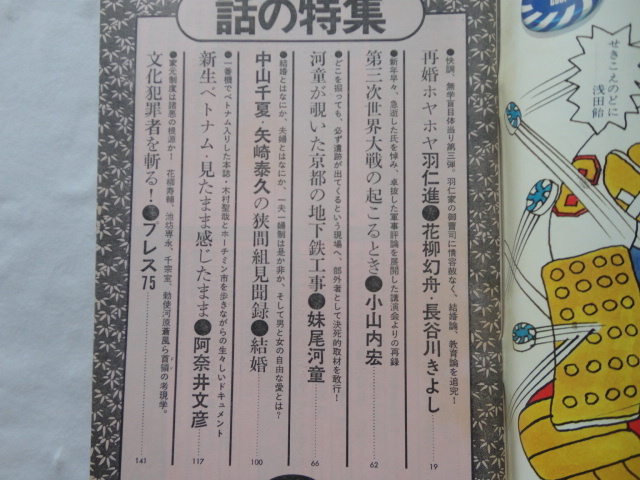 話の特集
●快調、無学盲目体当り第三弾。羽仁家の御曹司に情容赦なく、結婚論、教育論を追究!
再婚ホヤホヤ羽仁進●花柳幻舟・長谷川きよし
19
●新年早々、急逝した氏を悼み、卓抜した軍事評論を展開した講演会よりの再録
第三次世界大戦の起こるとき●小山内宏
62
●どこを掘っても、必ず遺跡が出てくるという現場へ、部外者として決死的取材を敢行!
河童が覗いた京都の地下鉄工事●妹尾河童
66
●結婚とはなにか、夫婦とはなにか、一夫一婦制は是か非か、そして男と女の自由な愛とは?
中山千夏・矢崎泰久の狭間組見聞録●結婚
100
●一番機でベトナム入りした本誌・木村聖哉とホーチミン市を歩きながらの生々しいドキュメント
新生ベトナム・見たまま感じたまま●阿奈井文彦
117
●家元制度は諸悪の根源か! 花柳寿輔、池坊専永、千宗室、勅使河原蒼風ら首領の考現学。
文化犯罪者を斬る!●プレス75
141
せきこえのどに
浅田飴